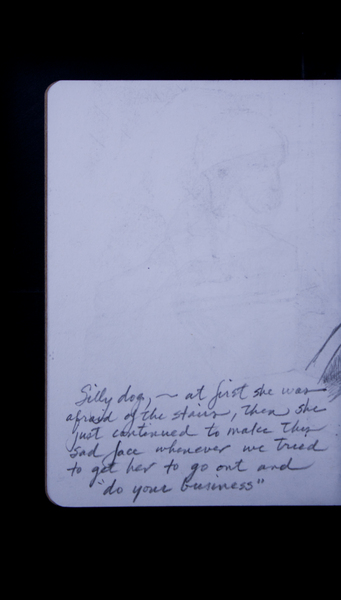 Silly dog, ~ at first she was
afraid of the stairs, then she
just continued to make this
sad face whenever we tried
to get her to go out and
"do your business"